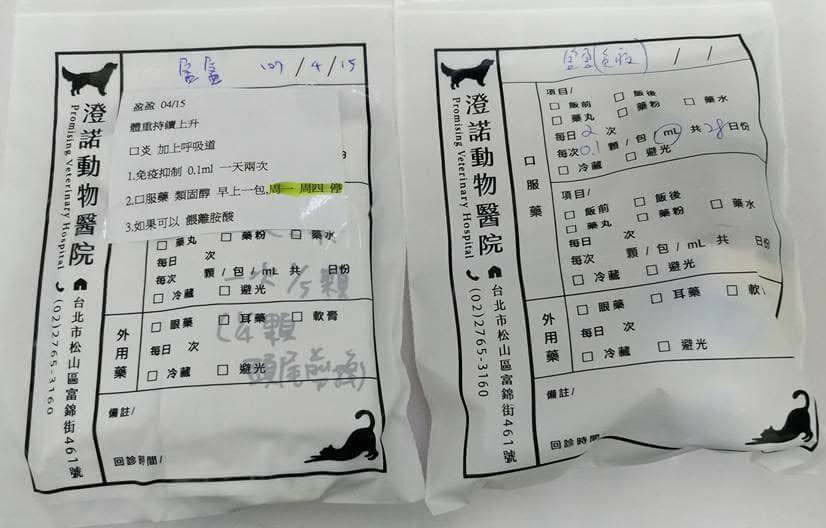 盈盈 107/4/15
澄諾動物醫院
Promising Veterinary Hospital
盈盈 04/15
體重持續上升
口炎 加上呼吸道
1.免疫抑制 0.1ml 一天兩次
2.口服藥 類固醇 早上一包,周一 周四 停
3.如果可以 餵離胺酸
□ 藥丸 □ 藥粉 □ 藥水
每日 次
每次 顆/包/mL 共 日份
□ 冷藏 □ 避光
一次 1/5顆
(4顆
頭尾剪掉)
外用藥
□ 眼藥 □ 耳藥 □ 軟膏
每日 次
□ 冷藏 □ 避光
備註/
回診時間/
(02)2765-3160
台北市松山區富錦街461號
盈盈 / /
澄諾動物醫院
Promising Veterinary Hospital
口服藥
項目/
□ 飯前 □ 飯後
□ 藥丸 □ 藥粉 □ 藥水
每日 2 次
每次 0.1 顆/包/mL 共 28 日份
□ 冷藏 □ 避光
項目/
□ 飯前 □ 飯後
□ 藥丸 □ 藥粉 □ 藥水
每日 次
每次 顆/包/mL 共 日份
□ 冷藏 □ 避光
外用藥
□ 眼藥 □ 耳藥 □ 軟
每日 次
□ 冷藏 □ 避光
備註/
回診時間
(02)2765-3160
台北市松山區富錦街461號